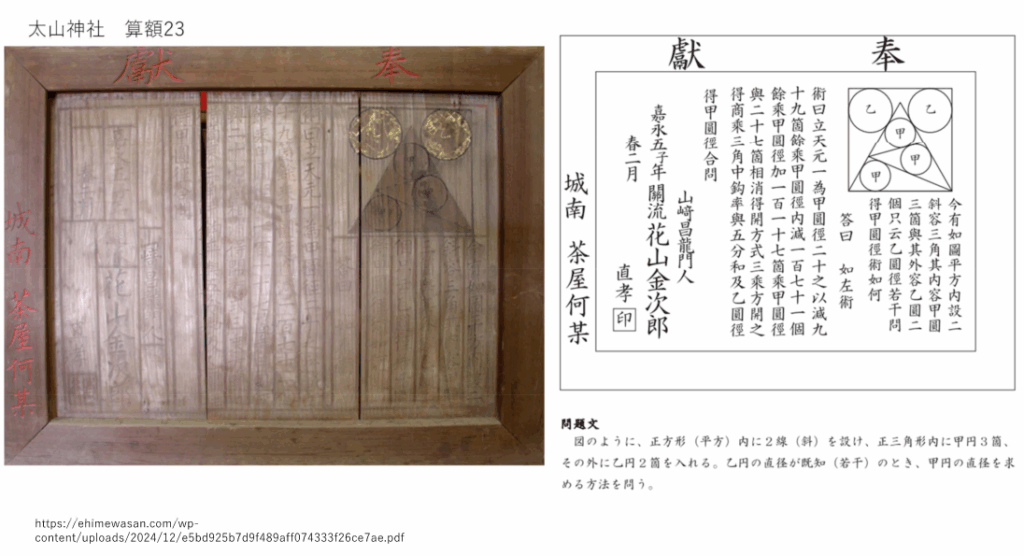 太山神社 算額23
奉
獻
乙
乙
甲
甲
甲
今有如圖平方内設二
斜容三角其内容甲圓
三箇與其外容乙圓二
個只云乙圓徑若干問
得甲圓徑術如何
答曰 如左術
術曰立天元一為甲圓徑二十之以減九
十九箇餘乘甲圓徑内減一百七十一個
餘乘甲圓徑加一百一十七箇乘甲圓徑
與二十七箇相消得開方式三乘方開之
得商乘三角中鈎率與五分和及乙圓徑
得甲圓徑合問
山﨑昌龍門人
嘉永五子年 關流 花山金次郎
春二月
直孝 印
城南 茶屋何某
奉
獻
城南 茶屋何某
問題文
図のように、正方形（平方）内に２線（斜）を設け、正三角形内に甲円３箇、
その外に乙円２箇を入れる。乙円の直径が既知（若干）のとき、甲円の直径を求
める方法を問う。
https://ehimewasan.com/wp-
content/uploads/2024/12/e5bd925b7d9f489aff074333f26ce7ae.pdf